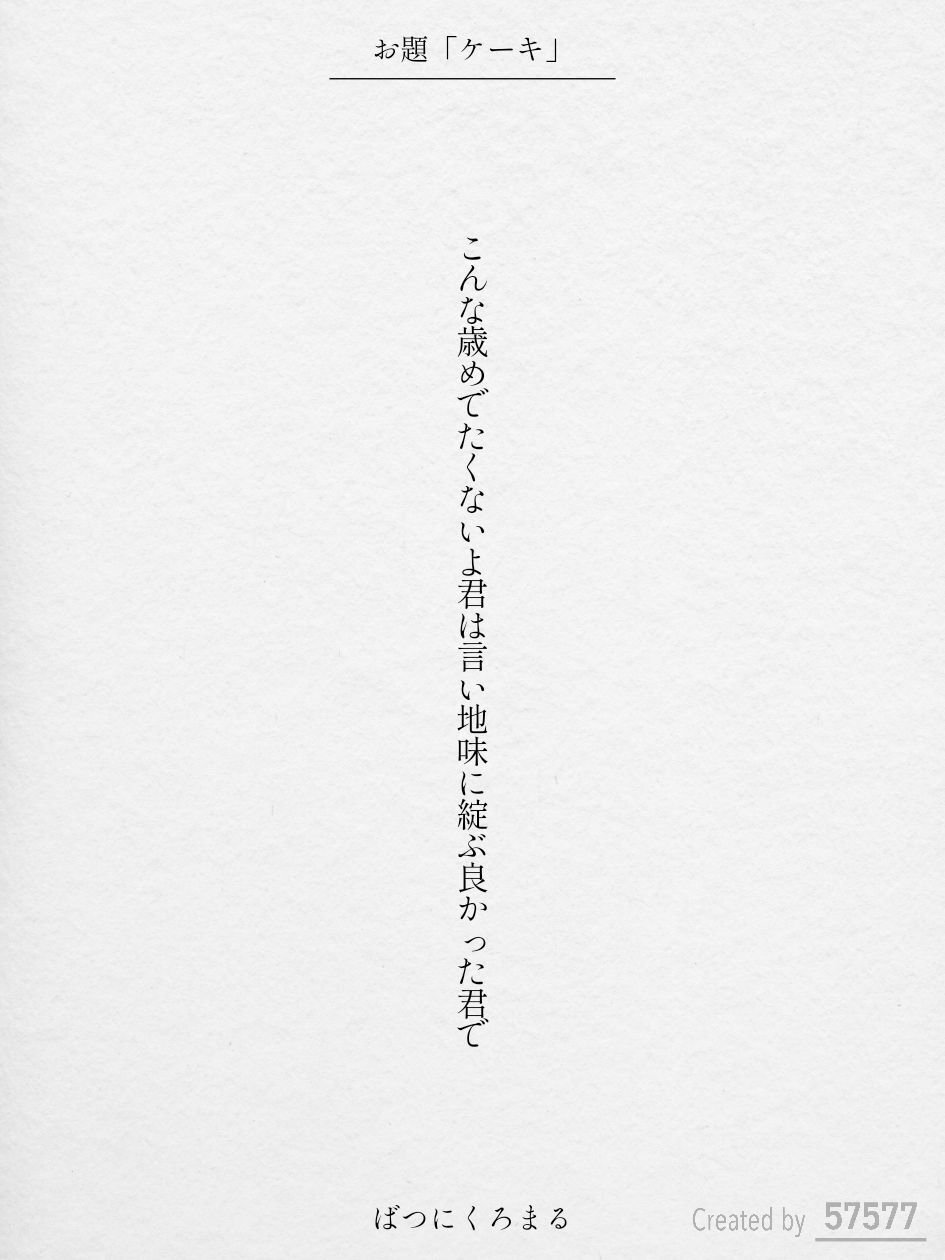 お題「ケーキ」
こんな歳めでたくないよ君は言い地味に綻ぶ良かった君で
ばつにくろまる
Created by 57577